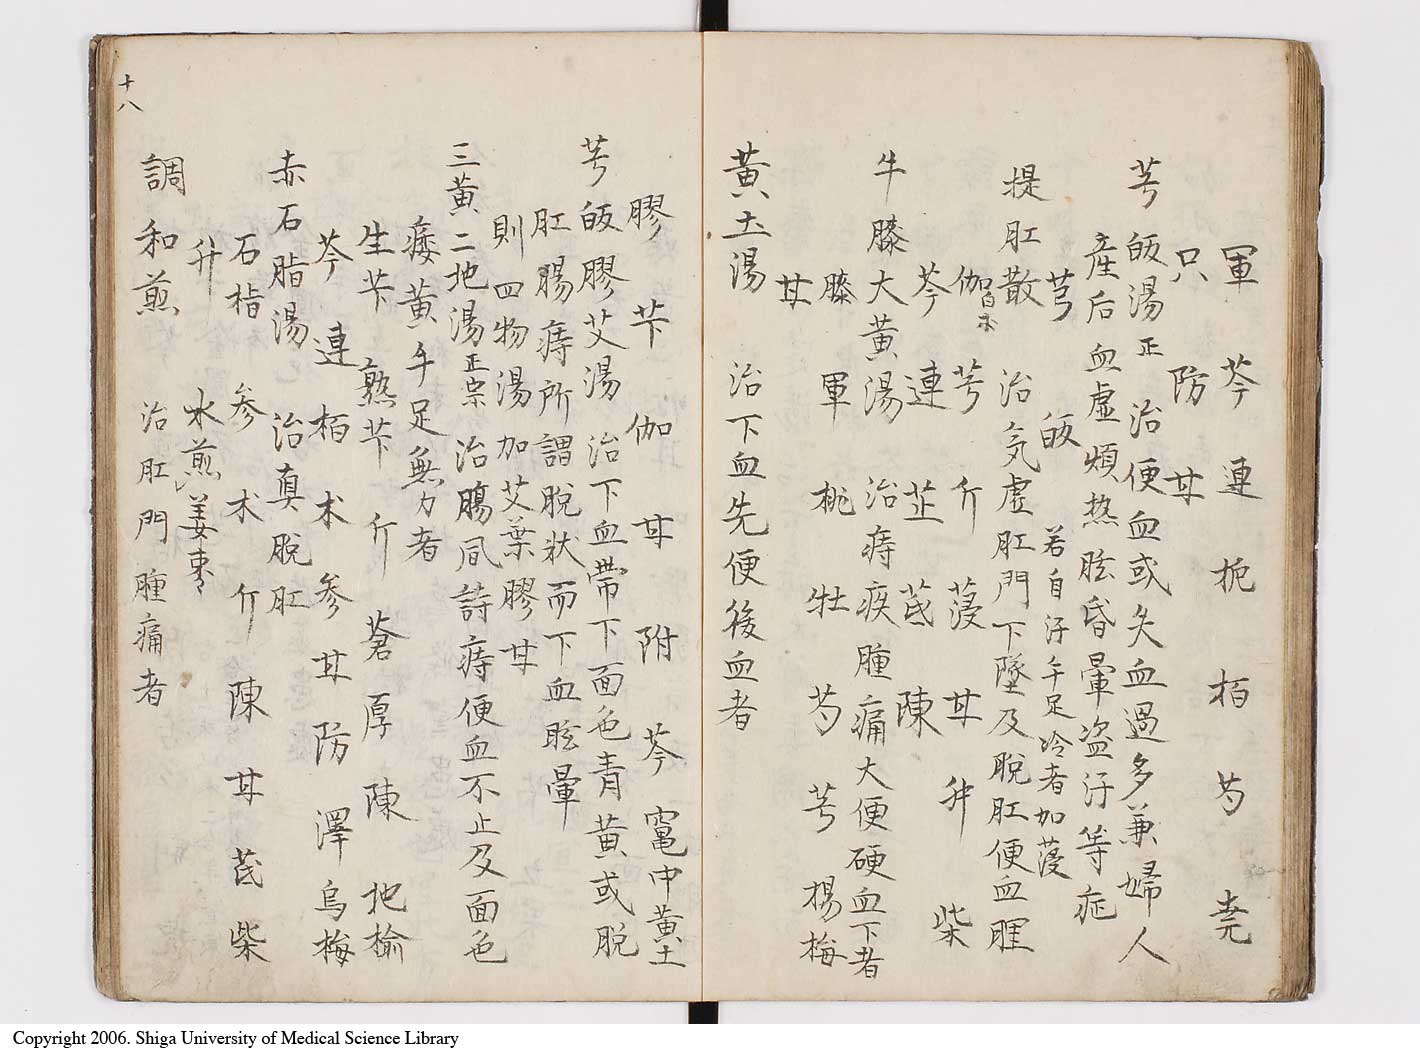 軍 芩 連 梔 栢 芍 尭
只 防 甘
芎皈湯正 治便血或失血過多兼婦人
産后血虚煩热眩昏暈盗汗等症
芎 皈 若自汗手足冷者加蓡
提肛散 治気虚肛門下墜及脱肛便血腥
伽白朮 芎 介 蓡 甘 升 柴
芩 連 芷 芪 陳
牛膝大黄湯 治痔疾腫痛大便硬血下者
膝 軍 桃 牡 芍 芎 楊梅
甘
黄土湯 治下血先便後血者
膠 芐 伽 甘 附 芩 竃中黄土
芎皈膠艾湯 治下血帯下面色青黄或脱
肛腸痔所謂脱状而下血眩暈
則四物湯加艾葉膠甘
三黄二地湯正宗 治腸風諸痔便血不止及面色
痿黄手足無力者
生芐 熟芐 介 蒼 厚 陳 地榆
芩 連 栢 朮 参 甘 防 澤 烏梅
赤石脂湯 治真脱肛
石脂 参 朮 介 陳 甘 芪 柴
升 水煎 姜棗
調和煎 治肛門腫痛者
十八
Copyright 2006. Shiga University of Medical Science Library